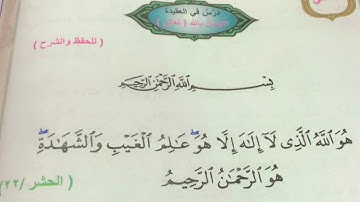 درس في العقيدة
الإيمان بالله ( تعالى )
( للحفظ والشرح )
بِسْمِ اللَّهِ الرَّحْمَٰنِ الرَّحِيمِ
هُوَ ٱللَّهُ ٱلَّذِى لَآ إِلَٰهَ إِلَّا هُوَۖ عَٰلِمُ ٱلْغَيْبِ وَٱلشَّهَٰدَةِۖ
هُوَ ٱلرَّحْمَٰنُ ٱلرَّحِيمُ
( الحشر /٢٢